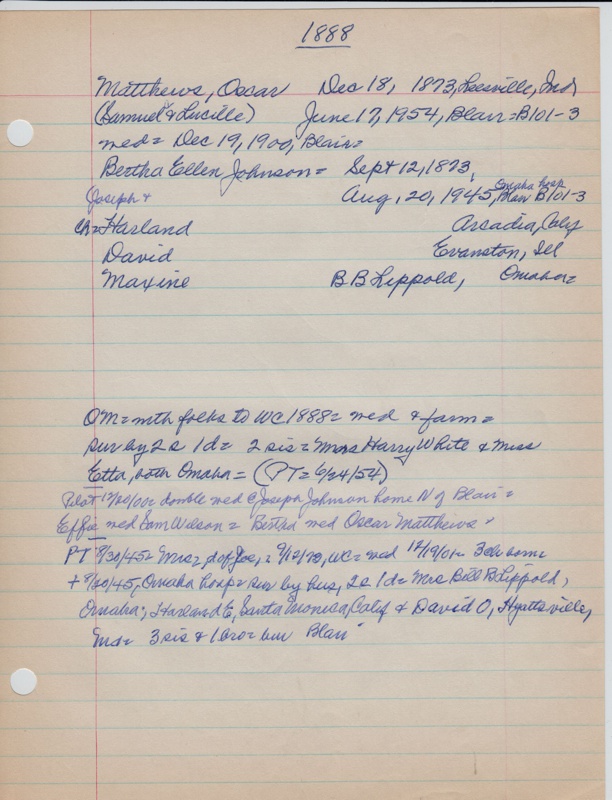 1888
Matthews, Oscar Dec 18, 1873, Leesville, Ind
(Samuel & Lucille) June 17, 1954, Blair = B101-3
med = Dec 19, 1900, Blair =
Bertha Ellen Johnson = Sept 12, 1873,
Joseph + Aug, 20, 1945, Omaha hosp Blair B101-3
ch = Harland Arcadia, Caly
David Evanston, Ill
Maxine B B Lippold, Omaha =
OM = mth folks to WC 1888 = med & farm =
sur by 2 s 1 d = 2 sis = Mrs Harry White & Miss
Etta, both Omaha = (PT = 6/24/54)
Pilot 12/20/00 = double wed @ Joseph Johnson home N of Blair =
Effie med Sam Wilson = Bertha med Oscar Matthews =
PT 8/30/45 = Mrs = d of Jos, = 9/12/73, WC = med 12/19/01 = 3 ch born
+ 8/20/45, Omaha hosp = sur by hus, 2 s 1 d = Mrs Bill B Lippold,
Omaha;, Harland E, Santa Monica, Calif & David O, Hyattsville,
Md = 3 sis & 1 bro = bur Blair